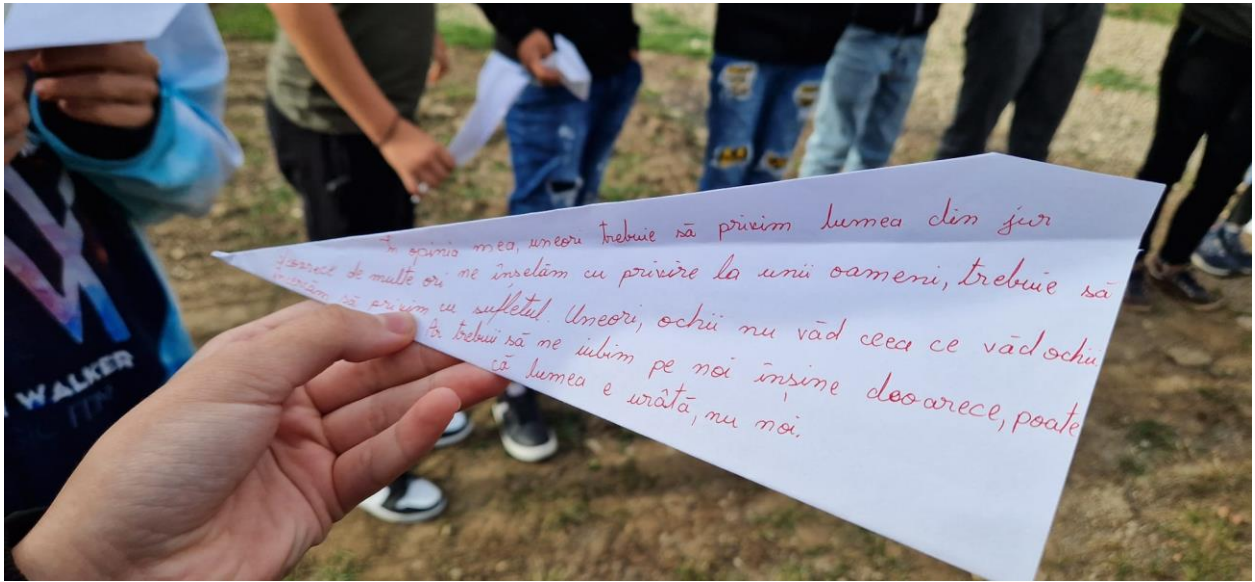 În opinia mea, uneori trebuie să privim lumea din jur
deoarece de multe ori ne înșelăm cu privire la unii oameni, trebuie să
încercăm să privim cu sufletul. Uneori, ochii nu văd ceea ce văd ochii
trebui să ne iubim pe noi înșine deoarece, poate
că lumea e urâtă, nu noi.
WALKER